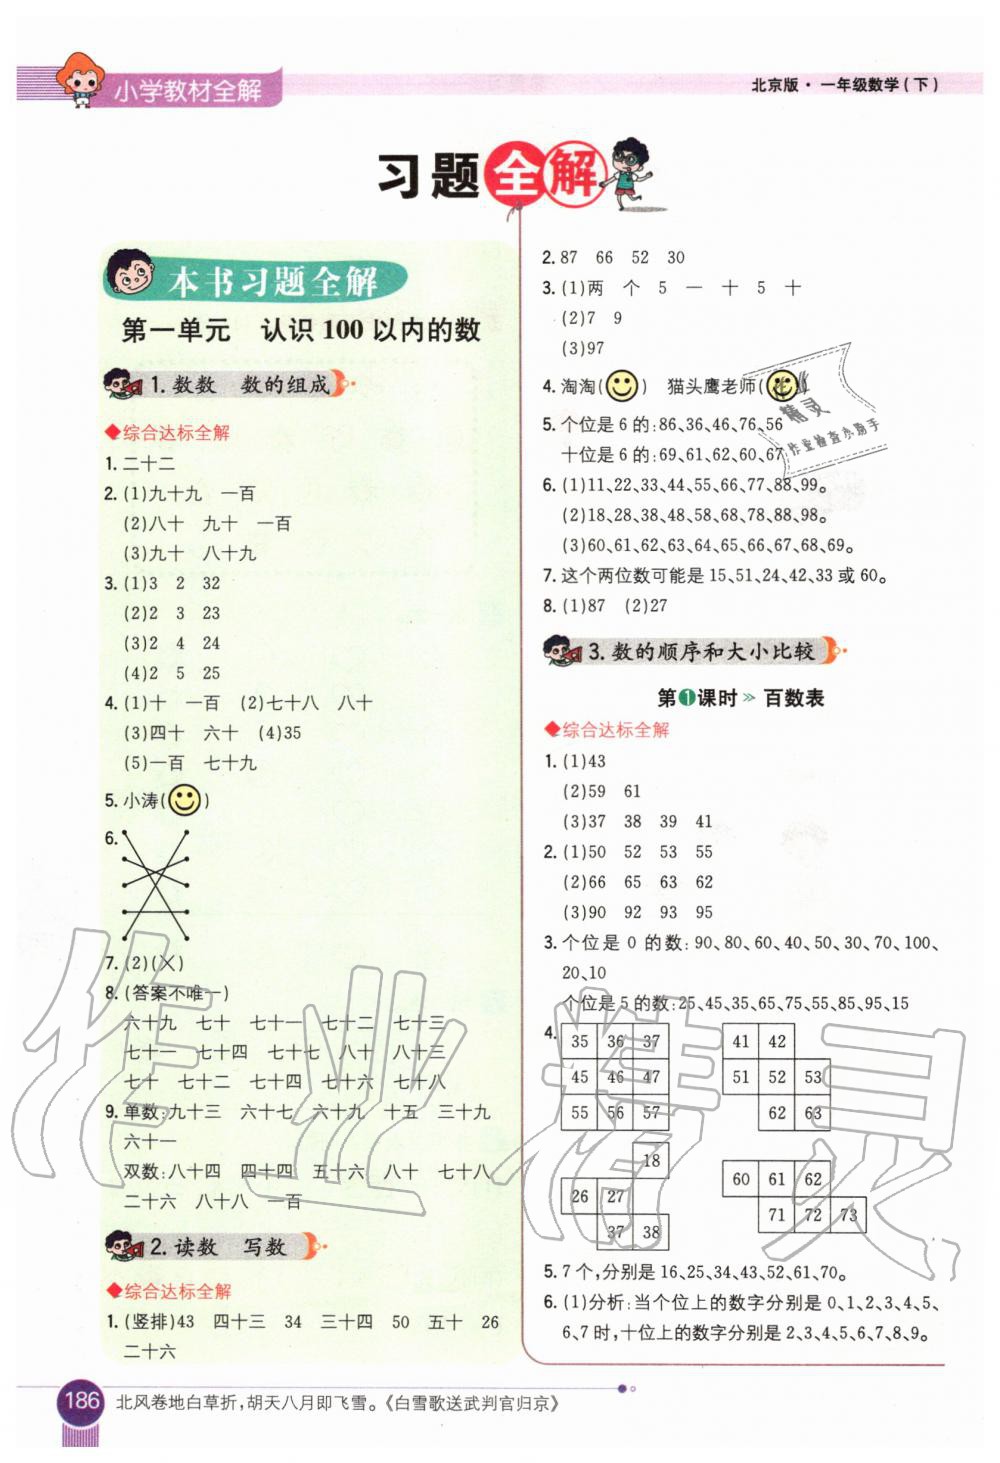 小学教材全解
北京版·一年级数学(下)
习题全解
本书习题全解
第一单元 认识100以内的数
1.数数 数的组成
◆综合达标全解
1.二十二
2.(1)九十九 一百
(2)八十 九十 一百
(3)九十 八十九
3.(1)3 2 32
(2)2 3 23
(3)2 4 24
(4)2 5 25
4.(1)十 一百 (2)七十八 八十
(3)四十 六十 (4)35
(5)一百 七十九
5.小涛( )
6.
7.(2)(×)
8.(答案不唯一)
六十九 七十 七十一 七十二 七十三
七十一 七十四 七十七 八十 八十三
七十 七十二 七十四 七十六 七十八
9.单数:九十三 六十七 六十九 十五 三十九
六十一
双数:八十四 四十四 五十六 八十 七十八
二十六 八十八 一百
2.读数 写数
◆综合达标全解
1.(竖排)43 四十三 34 三十四 50 五十 26
二十六
2.87 66 52 30
3.(1)两 个 5 一 十 5 十
(2)7 9
(3)97
4.淘淘( ) 猫头鹰老师( )
5.个位是6的:86、36、46、76、56
十位是6的:69、61、62、60、67
6.(1)11、22、33、44、55、66、77、88、99。
(2)18、28、38、48、58、68、78、88、98。
(3)60、61、62、63、64、65、66、67、68、69。
7.这个两位数可能是15、51、24、42、33或60。
8.(1)87 (2)27
3.数的顺序和大小比较
第1课时 » 百数表
◆综合达标全解
1.(1)43
(2)59 61
(3)37 38 39 41
2.(1)50 52 53 55
(2)66 65 63 62
(3)90 92 93 95
3.个位是0的数:90、80、60、40、50、30、70、100、
20、10
个位是5的数:25、45、35、65、75、55、85、95、15
4.
35 36 37
45 46 47
55 56 57
41 42
51 52 53
62 63
18
26 27
37 38
60 61 62
71 72 73
5.7个,分别是16、25、34、43、52、61、70。
6.(1)分析:当个位上的数字分别是0、1、2、3、4、5、
6、7时,十位上的数字分别是2、3、4、5、6、7、8、9。
186 北风卷地白草折,胡天八月即飞雪。《白雪歌送武判官归京》
精灵
作业检查小助手
作业精灵